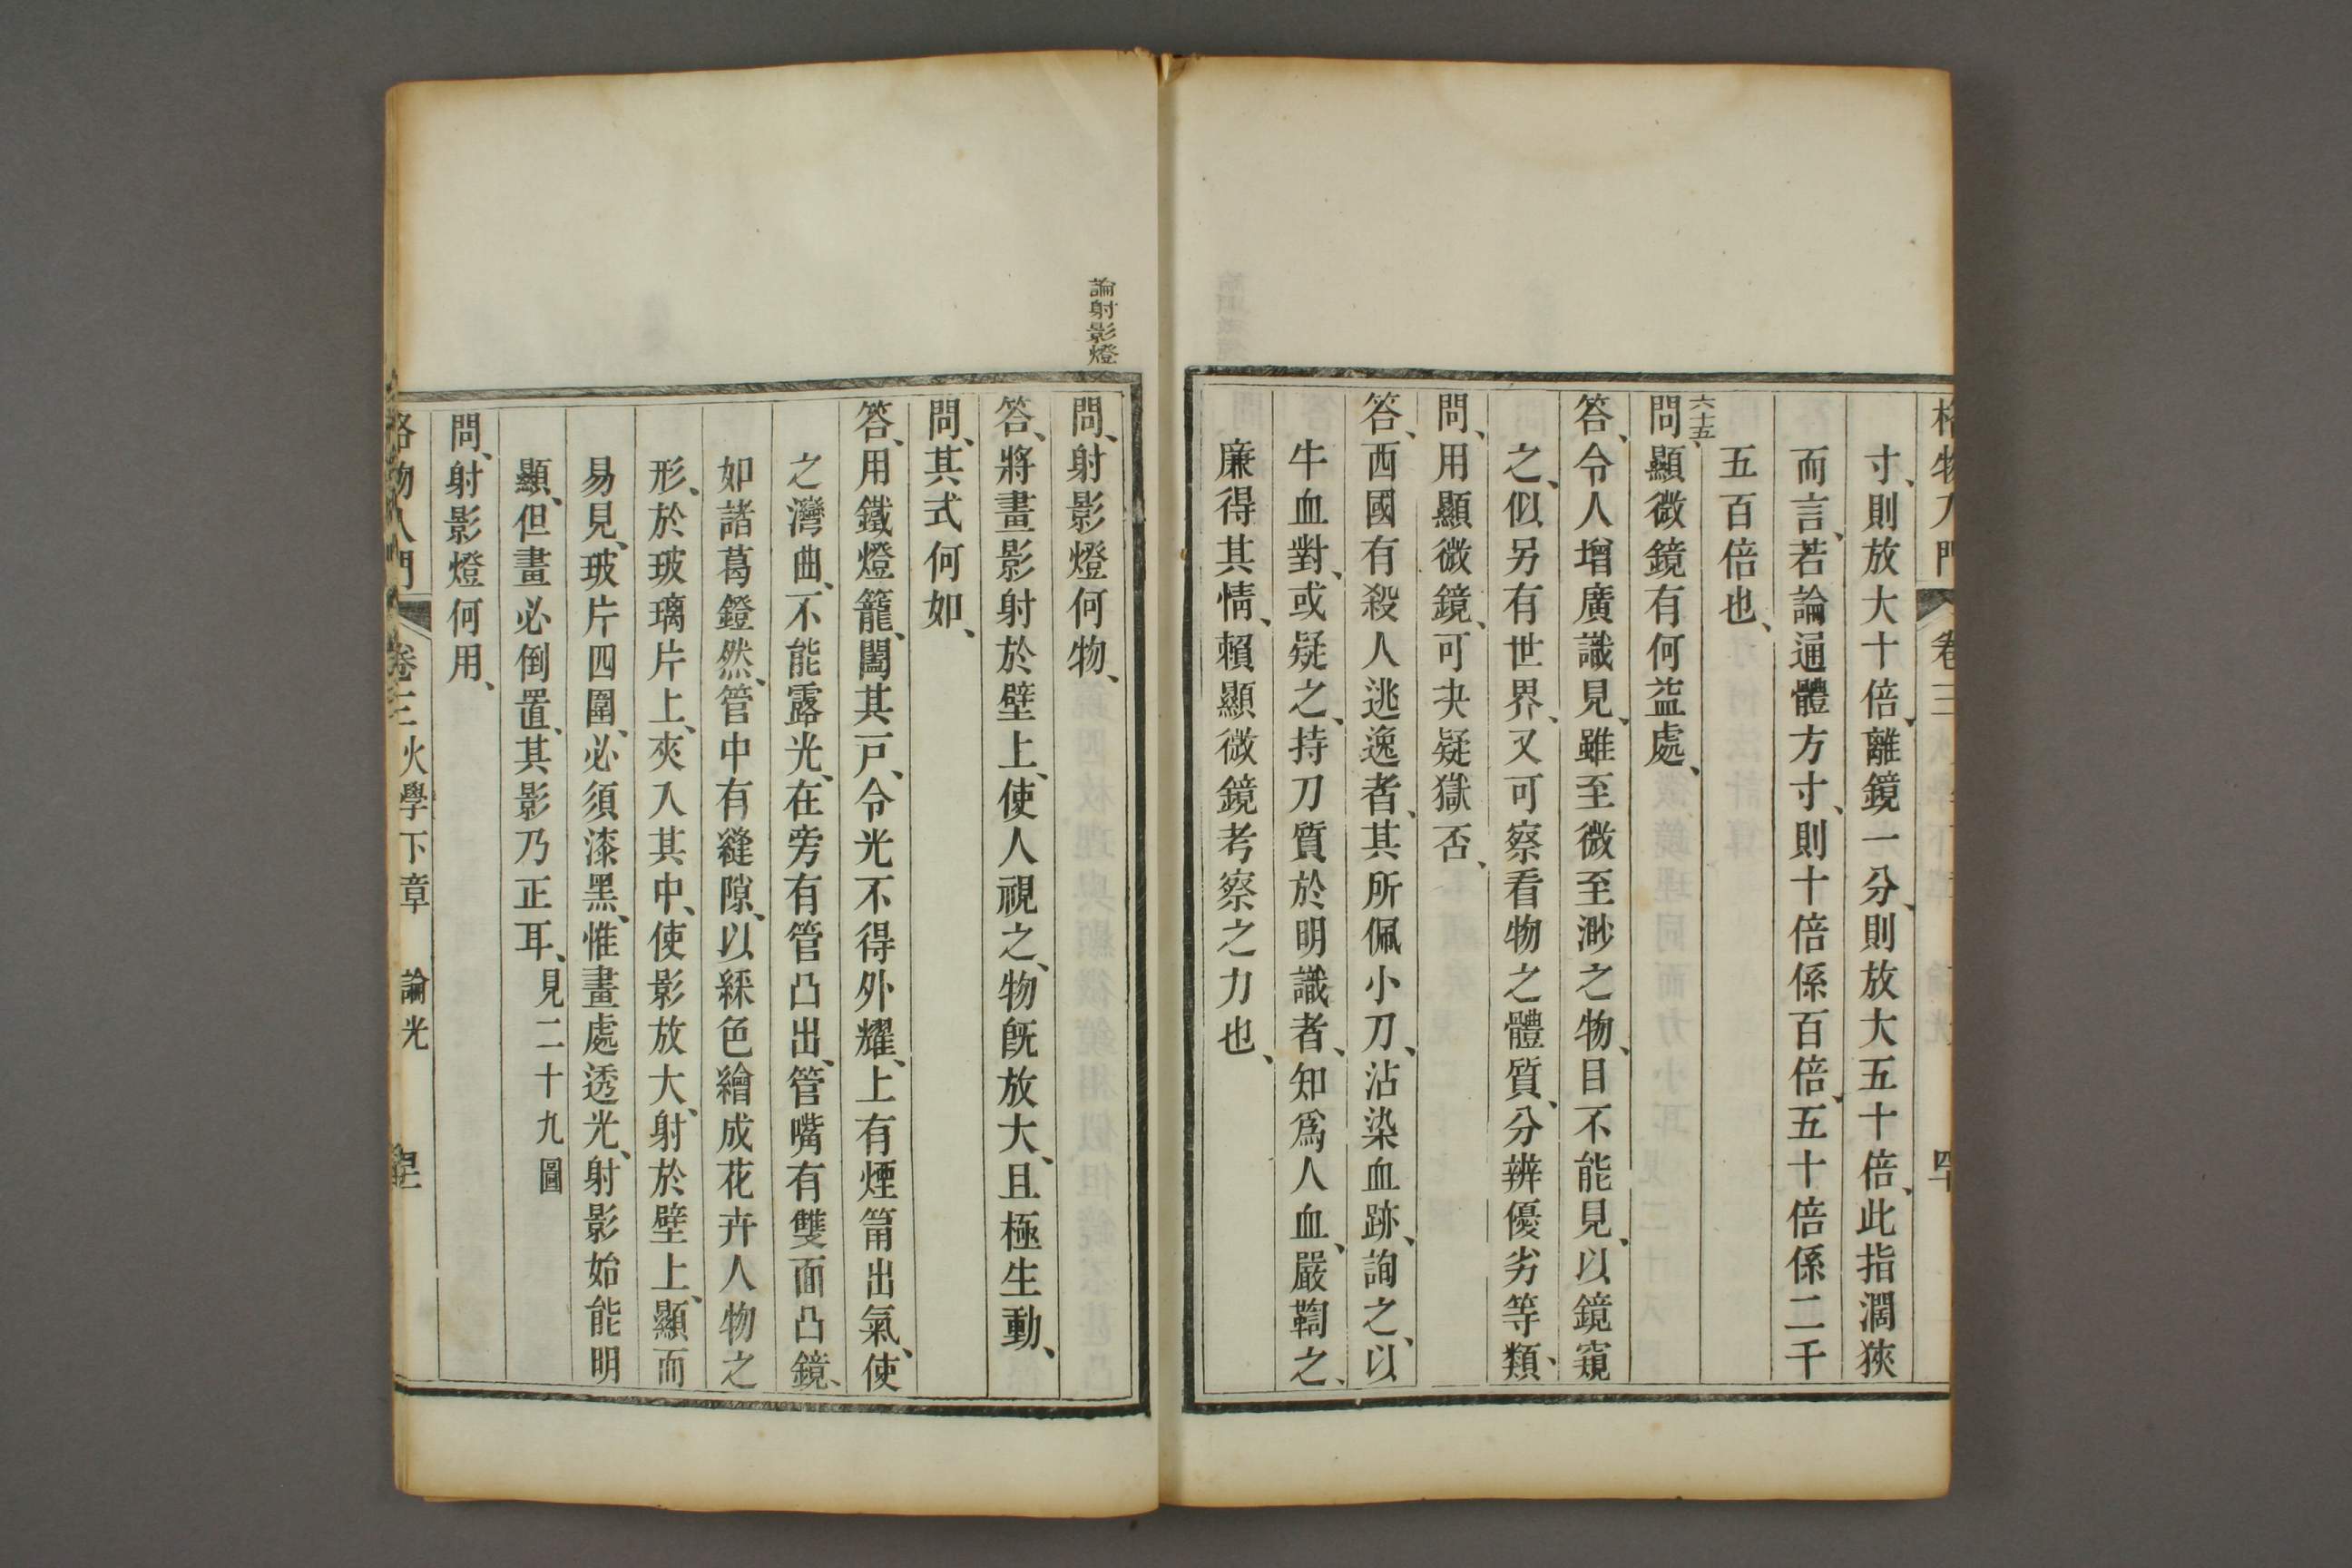 格物入門 卷三
寸、則放大十倍、離鏡一分、則放大五十倍、此指濶狹
而言、若論通體方寸、則十倍係百倍、五十倍係二千
五百倍也、
六十五
問、顯微鏡有何益處、
答、令人增廣識見、雖至微至渺之物、目不能見、以鏡窺
之、似另有世界、又可察看物之體質、分辨優劣等類、
問、用顯微鏡、可決疑獄否、
答、西國有殺人逃逸者、其所佩小刀、沾染血跡、詢之、以
牛血對、或疑之、持刀質於明識者、知爲人血、嚴鞫之、
廉得其情、賴顯微鏡考察之力也、
論射影燈
問、射影燈何物、
答、將畫影射於壁上、使人視之、物既放大、且極生動、
問、其式何如、
答、用鐵燈籠、闔其戸、令光不得外耀、上有煙筩出氣、使
之灣曲、不能露光、在旁有管凸出、管嘴有雙面凸鏡、
如諸葛鐙然、管中有縫隙、以綵色繪成花卉人物之
形、於玻璃片上、夾入其中、使影放大、射於壁上、顯而
易見、玻片四圍、必須漆黑、惟畫處透光、射影始能明
顯、但畫必倒置、其影乃正耳、見二十九圖
問、射影燈何用、
格物入門 卷三 火學下章 論光